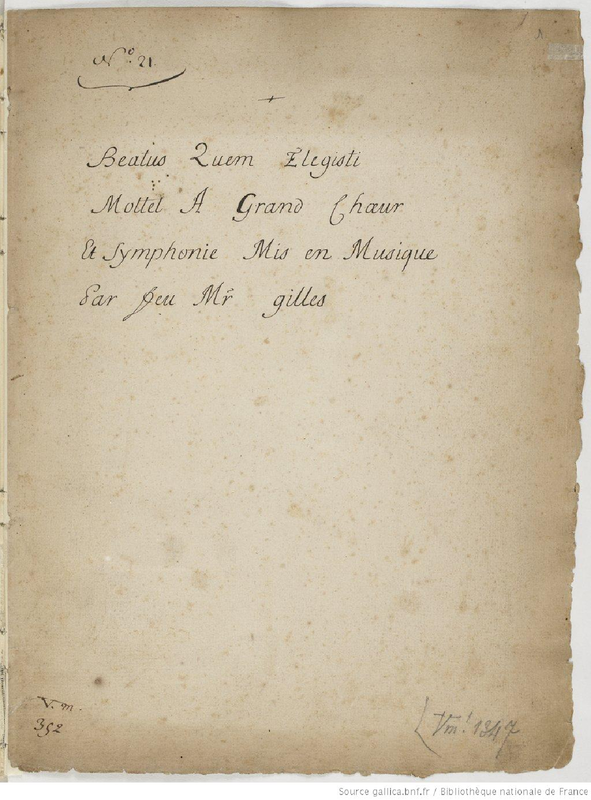 N.º 21.
Beatus Quem Elegisti
Mottet A Grand Chœur
Et Symphonie Mis en Musique
Par feu Mr gilles
V. m.
352
Vm¹ 1347
Source gallica.bnf.fr / Bibliothèque nationale de France